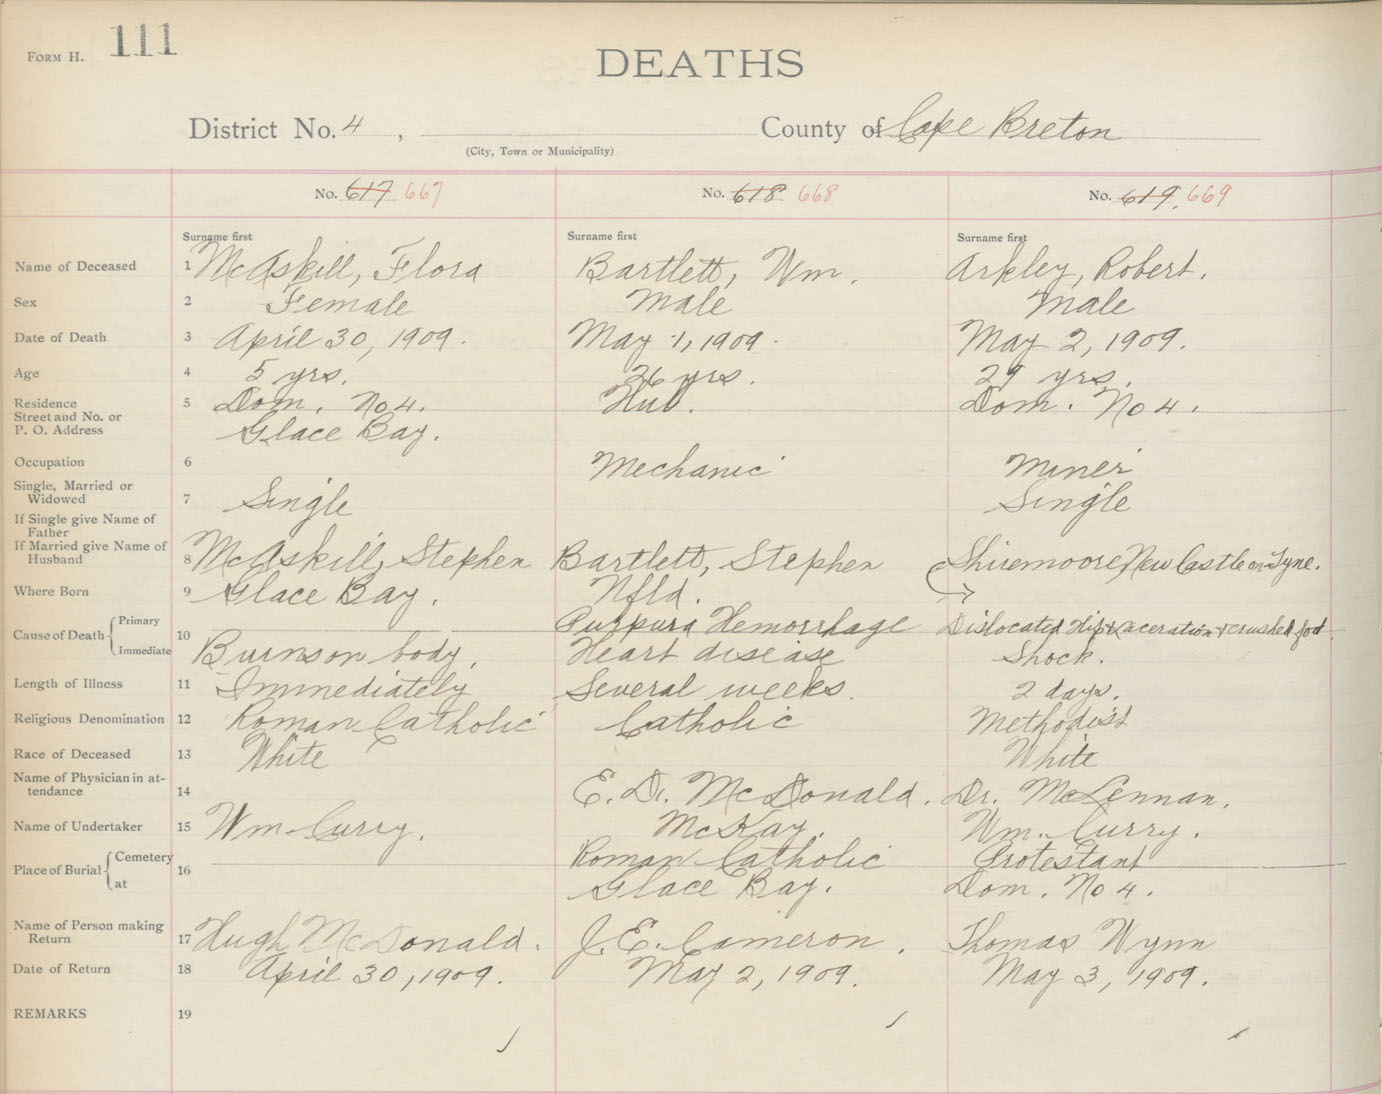 FORM H. 111
DEATHS
District No. 4 , County of Cape Breton
(City, Town or Municipality)
No. 617 667 No. 618 668 No. 619. 669
Surname first Surname first Surname first
Name of Deceased 1 McAskill, Flora Bartlett, Wm. Arkley, Robert.
Sex 2 Female Male Male
Date of Death 3 April 30, 1909. May 1, 1909. May 2, 1909.
Age 4 5 yrs. 26 yrs. 29 yrs.
Residence 5 Dom. No 4. Hub. Dom. No 4.
Street and No. or
P. O. Address Glace Bay.
Occupation 6 Mechanic Miner
Single, Married or
Widowed 7 Single Single
If Single give Name of
Father
If Married give Name of
Husband 8 McAskill, Stephen Bartlett, Stephen Shiremoore, New Castle on Tyne.
Where Born 9 Glace Bay. Nfld.
Cause of Death Primary 10 Purpura Hemorrhage Dislocated Hip & Laceration & crushed foot
Immediate Burns on body. Heart disease Shock.
Length of Illness 11 Immediately Several weeks. 2 days.
Religious Denomination 12 Roman Catholic Catholic Methodist
Race of Deceased 13 White White
Name of Physician in at-
tendance 14 E. D. McDonald. Dr. McLennan.
Name of Undertaker 15 Wm Curry. McKay. Wm. Curry.
Place of Burial Cemetery 16 Roman Catholic Protestant
at Glace Bay. Dom. No 4.
Name of Person making
Return 17 Hugh McDonald. J. E. Cameron. Thomas Wynn
Date of Return 18 April 30, 1909. May 2, 1909. May 3, 1909.
REMARKS 19